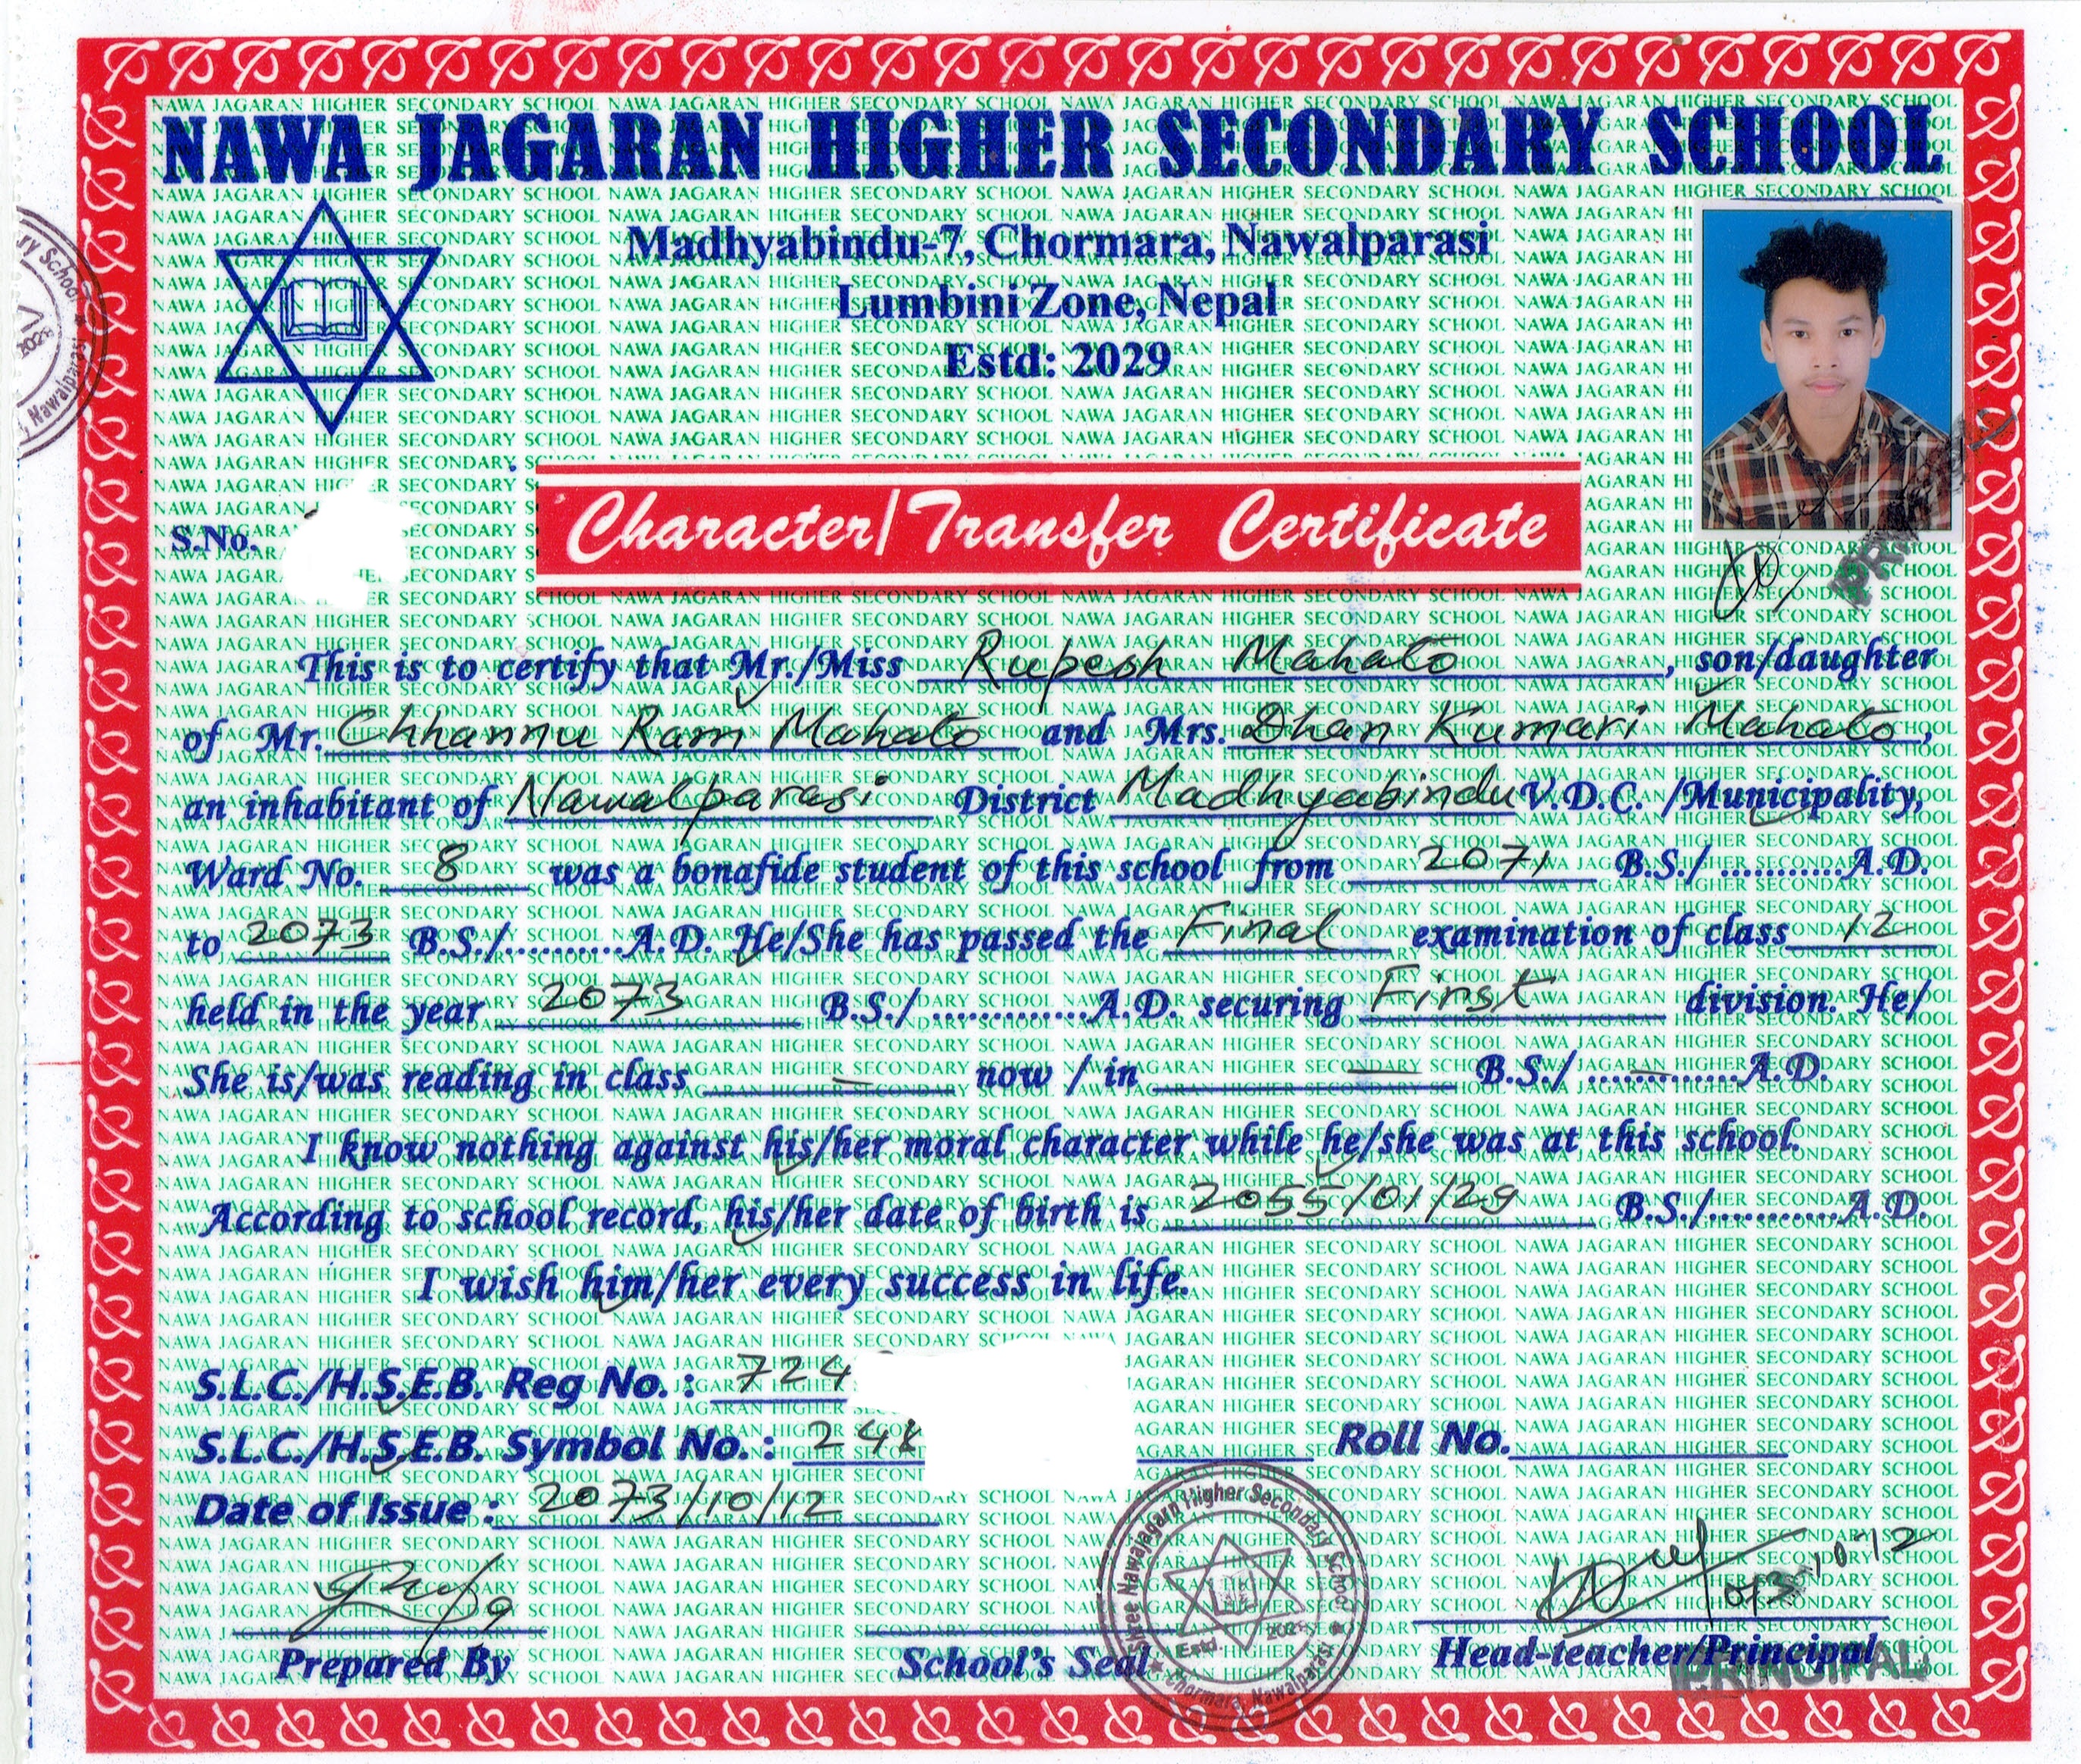 NAWA JAGARAN HIGHER SECONDARY SCHOOL
Madhyabindu-7, Chormara, Nawalparasi
Lumbini Zone, Nepal
Estd: 2029
S.No.
Character/Transfer Certificate
This is to certify that Mr./Miss Rupesh Mahato, son/daughter
of Mr. Chhannu Ram Mahato and Mrs. Dhan Kumari Mahato,
an inhabitant of Nawalparasi District Madhyabindu V.D.C. /Municipality,
Ward No. 8 was a bonafide student of this school from 2071 B.S./ ...........A.D.
to 2073 B.S./...........A.D. He/She has passed the Final examination of class 12
held in the year 2073 B.S./ ..............A.D. securing First division. He/
She is/was reading in class — now / in — B.S./ ..............A.D.
I know nothing against his/her moral character while he/she was at this school.
According to school record, his/her date of birth is 2055/01/29 B.S./............A.D.
I wish him/her every success in life.
S.L.C./H.S.E.B. Reg No. : 724
S.L.C./H.S.E.B. Symbol No. : 24 Roll No.
Date of Issue : 2073/10/12
Shree Nawajagarn Higher Secondary School
Estd.
Chormara, Nawalparasi
Prepared By School's Seal Head-teacher/Principal
PRINCIPAL